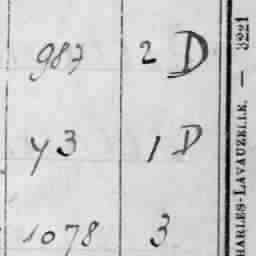 987 2 D
43 1 D
1078 3
HARLES-LAVAUZELLE. — 3221